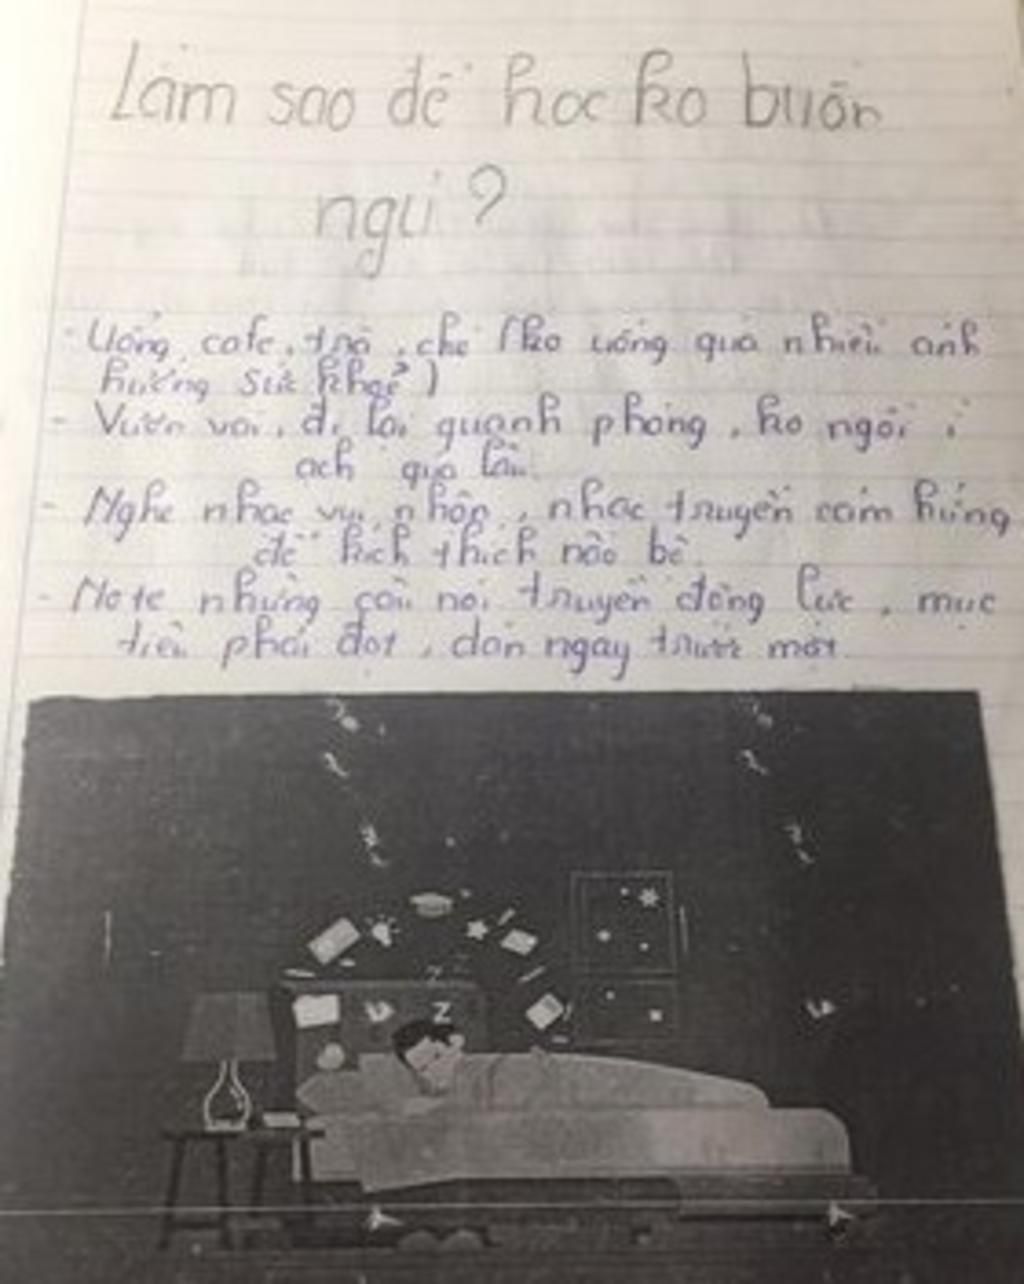 Làm sao để học ko buồn
ngủ?
- Uống cafe, trà, chè (ko uống quá nhiều ảnh
hưởng sức khoẻ)
- Vươn vai, đi lại quanh phòng, ko ngồi ì
ạch quá lâu.
- Nghe nhạc vui nhộn, nhạc truyền cảm hứng
để kích thích não bộ.
- Note những câu nói truyền động lực, mục
tiêu phải đạt, dán ngay trước mắt.
z
Z